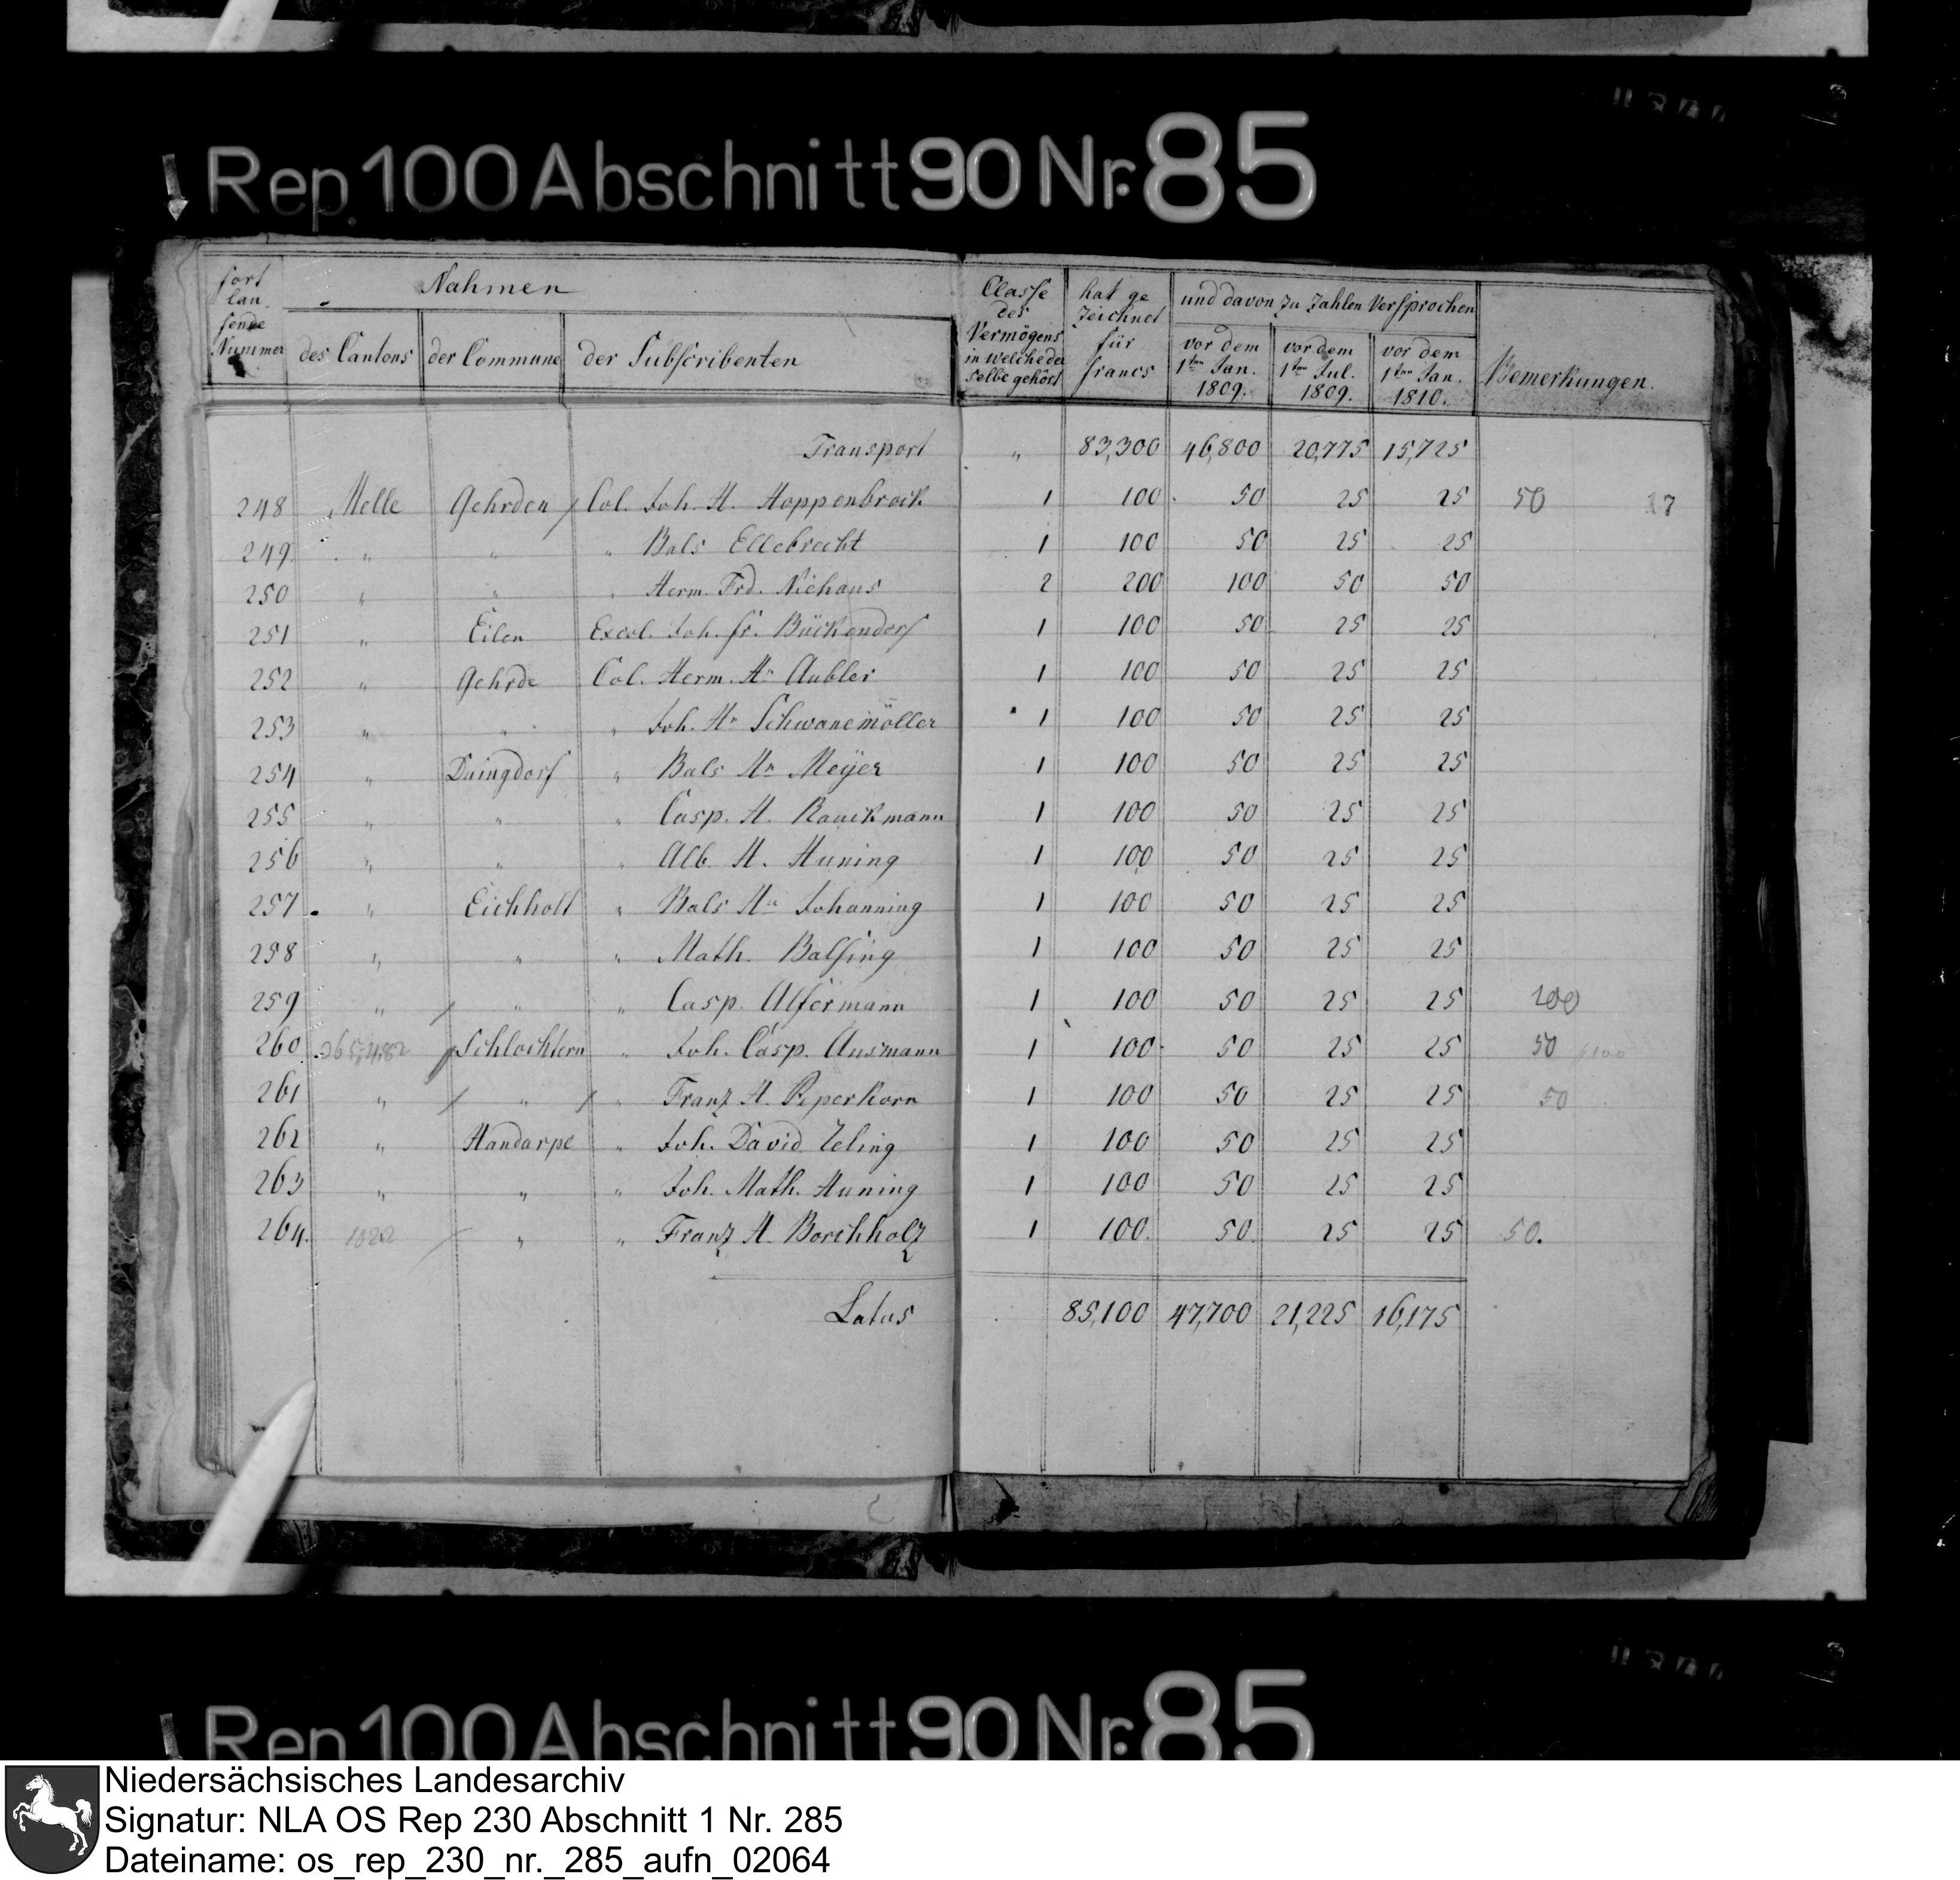 Rep. 100 Abschnitt 90 Nr. 85
fort lau- fende Nummer | Nahmen | Classe des Vermögens in welche der selbe gehört | hat ge zeichnet für francs | und davon zu zahlen versprochen | Bemerkungen.
des Cantons | der Commune | der Subscribenten | vor dem 1ten Jan. 1809. | vor dem 1ten Jul. 1809. | vor dem 1ten Jan. 1810.
Transport " 83,300 46,800 20,775 15,725
248 Melle Gehrden / Col. Joh. H. Hoppenbrock 1 100 50 25 25 50 17
249 " " " Bals Ellebrecht 1 100 50 25 25
250 " " " Herm. Frd. Niehaus 2 200 100 50 50
251 " Eilen Excol. Joh. fr. Bückendorf 1 100 50 25 25
252 " Gehrde Col. Herm. Hr Aubler 1 100 50 25 25
253 " " " Joh. Hr Schwanemöller 1 100 50 25 25
254 " Duingdorf " Bals Hr Meÿer 1 100 50 25 25
255 " " " Casp. H. Rauckmann 1 100 50 25 25
256 " " " Alb. H. Huning 1 100 50 25 25
257 " Eichholt " Bals Hr Johanning 1 100 50 25 25
258 " " " Math. Balsing 1 100 50 25 25
259 " / " " Casp. Alfermann 1 100 50 25 25 100
260 Schlochtern " Joh. Casp. Ausmann 1 100 50 25 25 50
261 " / " / " Franz H. Peperkorn 1 100 50 25 25 50
262 " Handarpe " Joh. David Zeling 1 100 50 25 25
263 " " " Joh. Math. Huning 1 100 50 25 25
264. 1022 / " " Franz H. Borchholz 1 100. 50. 25 25 50.
Latus 85,100 47,700 21,225 16,175
Rep 100 Abschnitt 90 Nr. 85
Niedersächsisches Landesarchiv
Signatur: NLA OS Rep 230 Abschnitt 1 Nr. 285
Dateiname: os_rep_230_nr._285_aufn_02064